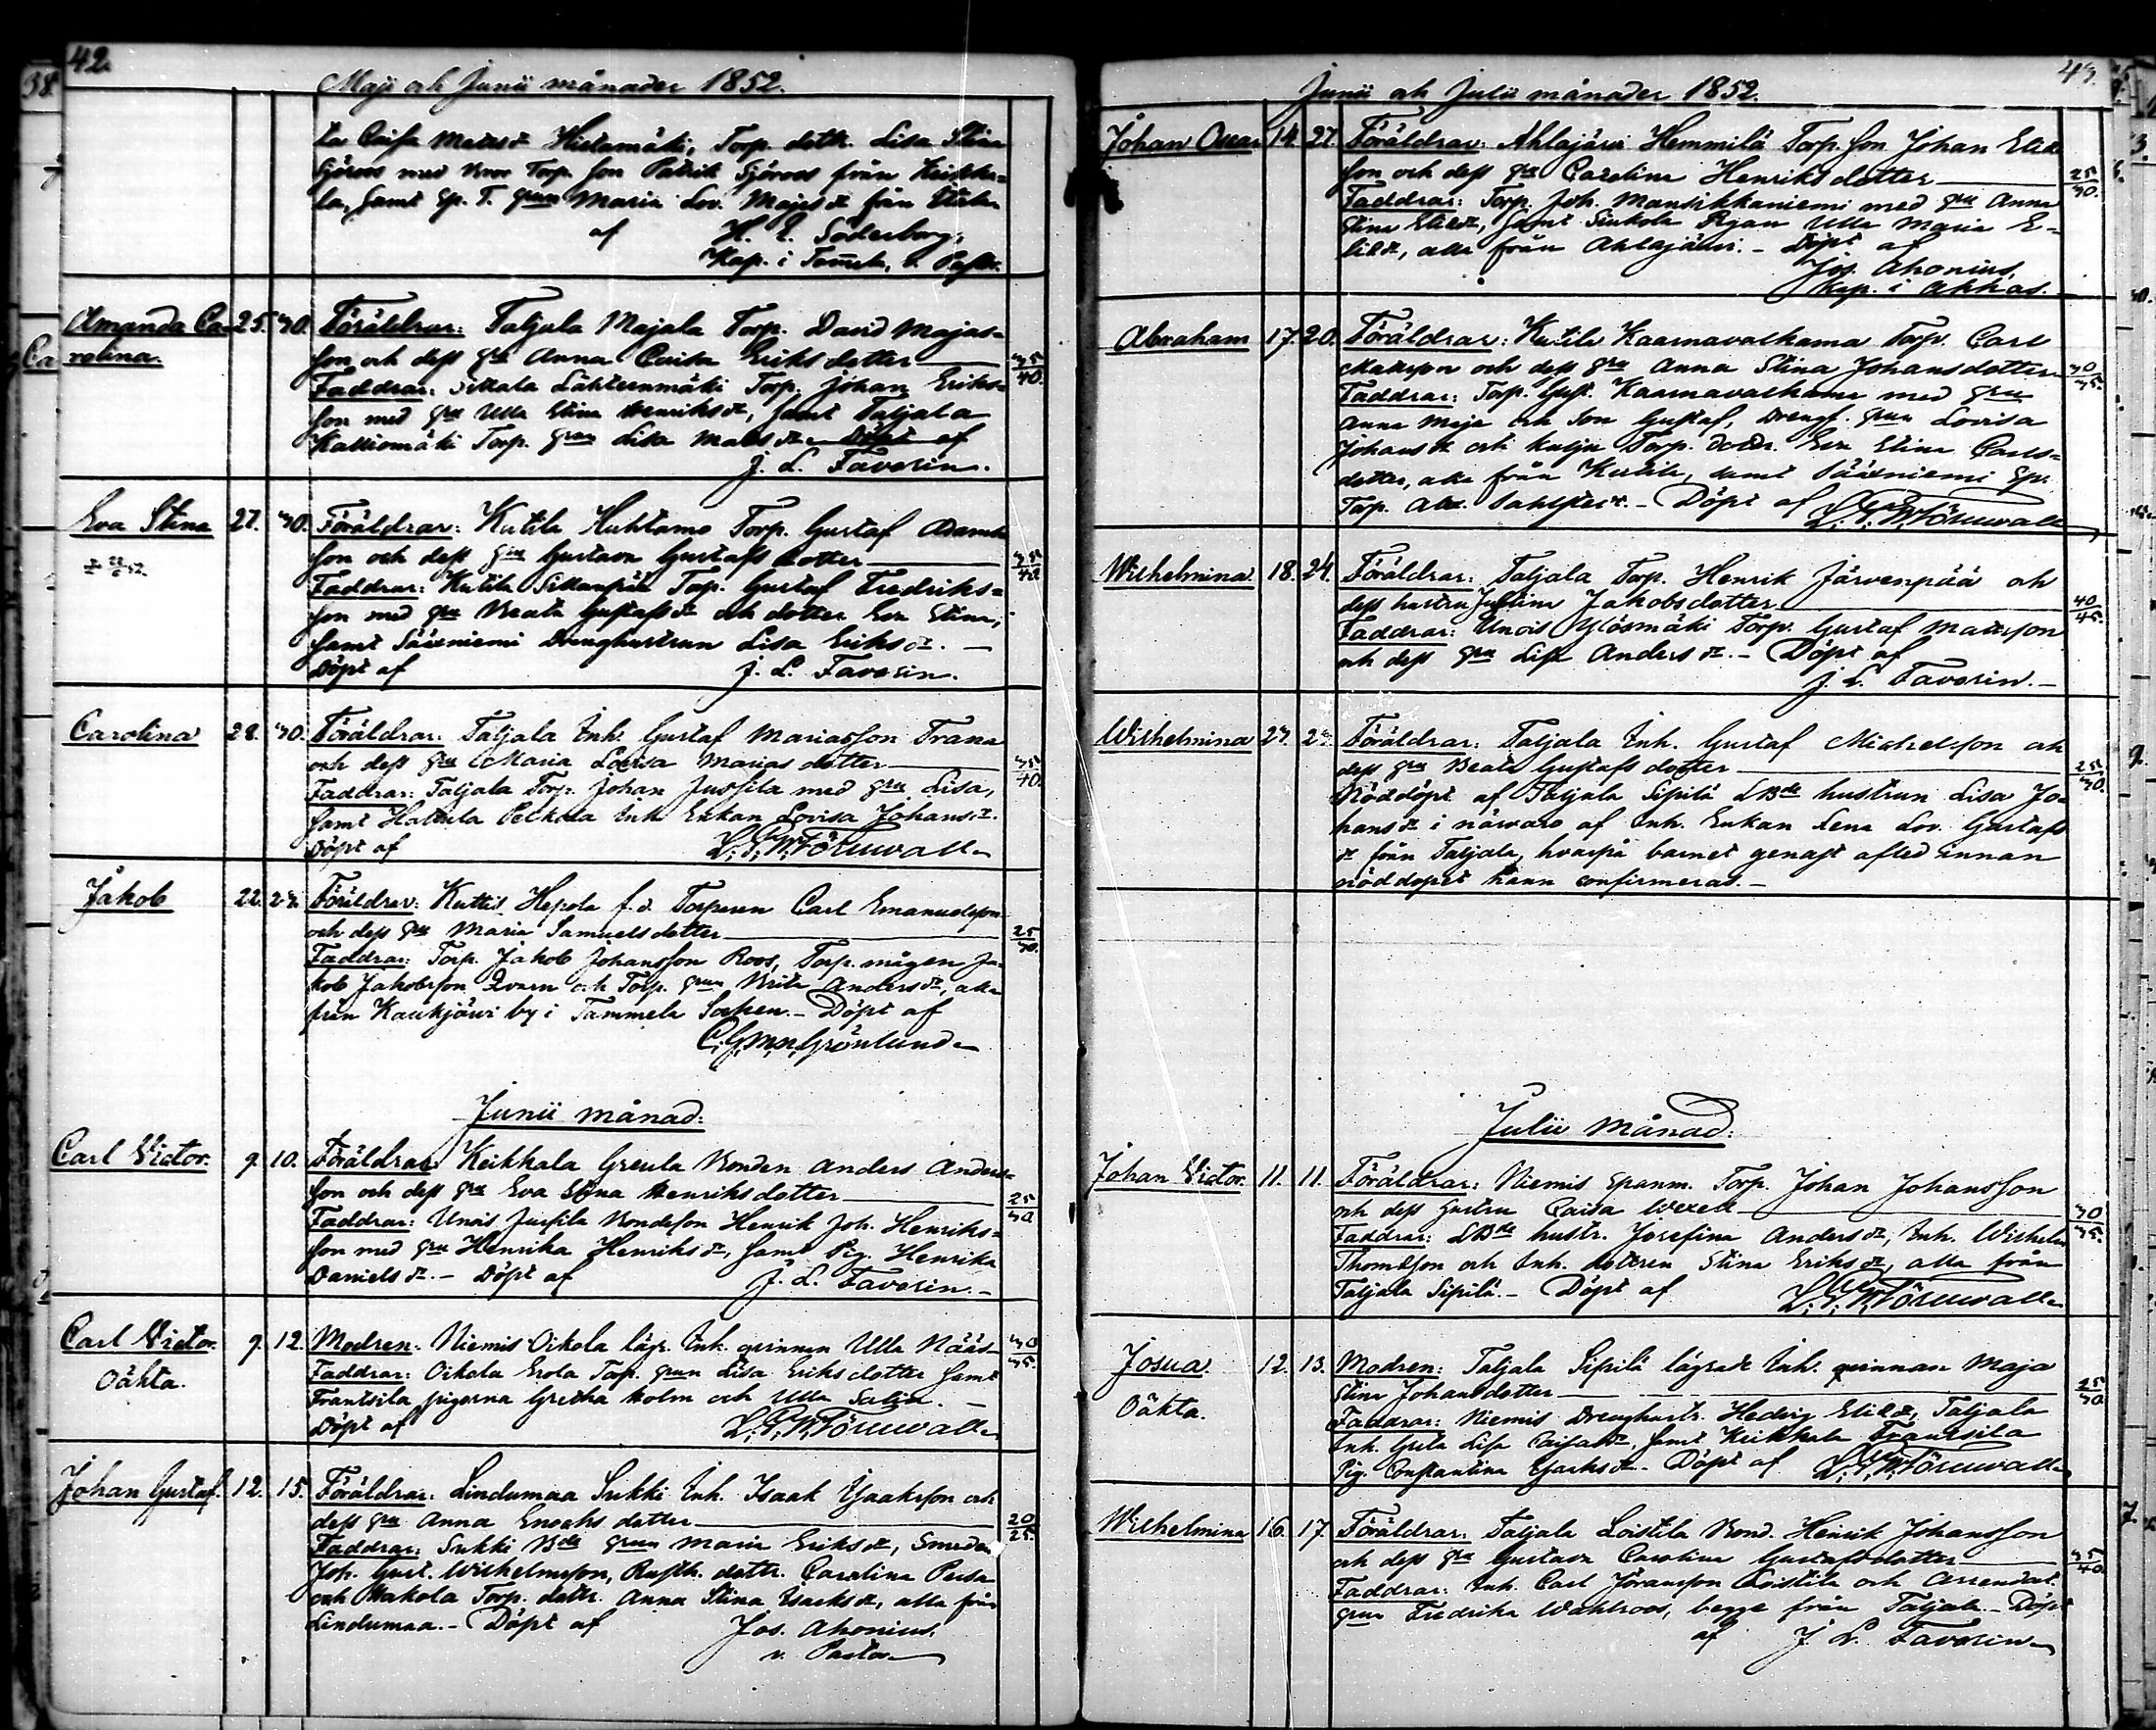 42.
Maji och Junii månader 1852.
Caisa Matsdr Hietamäki, Torp. dottr. Lisa Stina
Sjöroos med Torp. son Patrik Sjöroos från Keikka=
la, samt Sp. T. grun Maria Lov. Majasdr från
af H. E. Söderborg,
Kap. i v. Past.
Amanda Ca= 25. 30. Föräldrar: Taljala Majala Torp. David Majas=
rolina. son och dess hu Anna Caisa Eriksdotter 35/40.
Faddrar: Lähteenmäki Torp. Johan Eriks=
son med hu Ulla Stina Henriksdr, samt Taljala
Kalliomäki Torp. hun Lisa Matsdr. Döpt af
J. L. Favorin.
Eva Stina 27. 30. Föräldrar: Kutila Huhtamo Torp. Gustaf Adams
son och dess hu Gustava Gustafsdotter 35/40.
Faddrar: Kutila Torp. Gustaf Fredriks=
son med hu Beata Gustafsdr och dotter Eva Stina,
samt Sääxniemi Drenghustrun Lisa Eriksdr. —
Döpt af J. L. Favorin.
Carolina 28. 30. Föräldrar: Taljala Inh. Gustaf Mariasson Trana
och dess hu Maria Lovisa Mariasdotter 35/40.
Faddrar: Taljala Torp. Johan Jussila med hu Lisa,
samt Hattula Pelkola Inh. Enkan Lovisa Johansdr.
Döpt af L. G. W. Törnwall
Jakob 22. 23. Föräldrar: Kuttis Hepola f. d. Torparen Carl Emanuelsson
och dess hu Maria Samuelsdotter 25/30.
Faddrar: Torp. Jakob Johansson Roos, Torp. mågen Ja=
kob Jakobsson Qvarn och Torp. hun Brita Andersdr, alla
från Kaukjärvi by i Tammela Socken. — Döpt af
C. G. Mn. Grönlund
Junii månad:
Carl Victor. 9. 10. Föräldrar: Keikkala Greula Bonden Anders Anders=
son och dess hu Eva Stina Henriksdotter 25/30.
Faddrar: Unois Jussila Bondeson Henrik Joh. Henriks=
son med hu Henrika Henriksdr, samt Pig. Henrika
Danielsdr. — Döpt af J. L. Favorin. —
Carl Victor. 9. 12. Modren: Niemis Oikola lägr. Inh. qvinnan Ulla Nääs 30/35.
Oäkta. Faddrar: Oikola Erola Torp. hun Lisa Eriksdotter samt
Frantsila pigorna Gretha Holm och Ulla Salin. —
Döpt af L. G. W. Törnwall
Johan Gustaf. 12. 15. Föräldrar: Lindumaa Sukki Inh. Isaak Isaaksson och
dess hu Anna Enochsdotter 20/25.
Faddrar: Sukki Bde hun Maria Eriksdr, Smeden
Joh. Gust. Wilhelmsson, Rusth. dottr. Carolina Persa
och Torp. dottr. Anna Stina Isaksdr, alla från
Lindumaa. — Döpt af Jos. Ahonius,
v. Pastor
43.
Junii och Julii månader 1852.
Johan Oscar 14. 27. Föräldrar: Ahlajärvi Hemmilä Torp. Son Johan Elias
son och dess hu Carolina Henriksdotter 25/30.
Faddrar: Torp. Joh. Mansikkaniemi med hu Anna
Stina Eliedr, samt Pigan Ulla Maria E=
liedr, alla från Ahlajärvi. — Döpt af
Jos. Ahonius,
Kap. i Akkas.
Abraham 17. 20. Föräldrar: Kutila Kaarnavalkama Torp. Carl
Mattsson och dess hu Anna Stina Johansdotter 30/35.
Faddrar: Torp. Gust. Kaarnavalkama med hu
Anna Maja och Son Gustaf, Drengs hun Lovisa
Johansdr och Torp. dottr. Eva Stina Carls=
dotter, alla från Kutila, samt Sääxniemi Sp.
Torp. Alex. Sahlsten. — Döpt af L. G. W. Törnwall
Wilhelmina 18. 24. Föräldrar: Taljala Torp. Henrik Järvenpää och
dess hustru Justina Jakobsdotter 40/45.
Faddrar: Unois Ylösmäki Torp. Gustaf Mattsson
och dess hu Lisa Andersdr. — Döpt af
J. L. Favorin. —
Wilhelmina 23. 23. Föräldrar: Taljala Inh. Gustaf Michelsson och
dess hu Beata Gustafsdotter 25/30.
Nöddöpt af Taljala Sipilä LBde hustrun Lisa Jo=
hansdr i närvaro af Inh. Enkan Lena Lov. Gustafs
dr från Taljala, hvarpå barnet genast afled innan
nöddopet hann confirmeras. —
Julii månad:
Johan Victor. 11. 11. Föräldrar: Niemis Spanm. Torp. Johan Johansson
och dess hustru Caisa Wexell 30/35.
Faddrar: LBde hustr. Josefina Andersdr, Inh. Wilhelm
Thomasson och Inh. dottren Stina Eriksdr, alla från
Taljala Sipilä. — Döpt af L. G. W. Törnwall
Josua. 12. 13. Modren: Taljala Sipilä lägrade Inh. qvinnan Maja
Oäkta. Stina Johansdotter 25/30.
Faddrar: Niemis Drenghustr. Hedvig Eliedr, Taljala
Inh. Greta Lisa Caisasdr, samt Keikkala Frantsila
Pig. Constantina Isaksdr. Döpt af L. G. W. Törnwall
Wilhelmina 16. 17. Föräldrar: Taljala Loistila Bond. Henrik Johansson
och dess hu Gustava Carolina Gustafsdotter 35/40.
Faddrar: Inh. Carl Göransson Loistila och Arrendat.
hun Fredrika Wahlroos, begge från Taljala. — Döpt
af J. L. Favorin